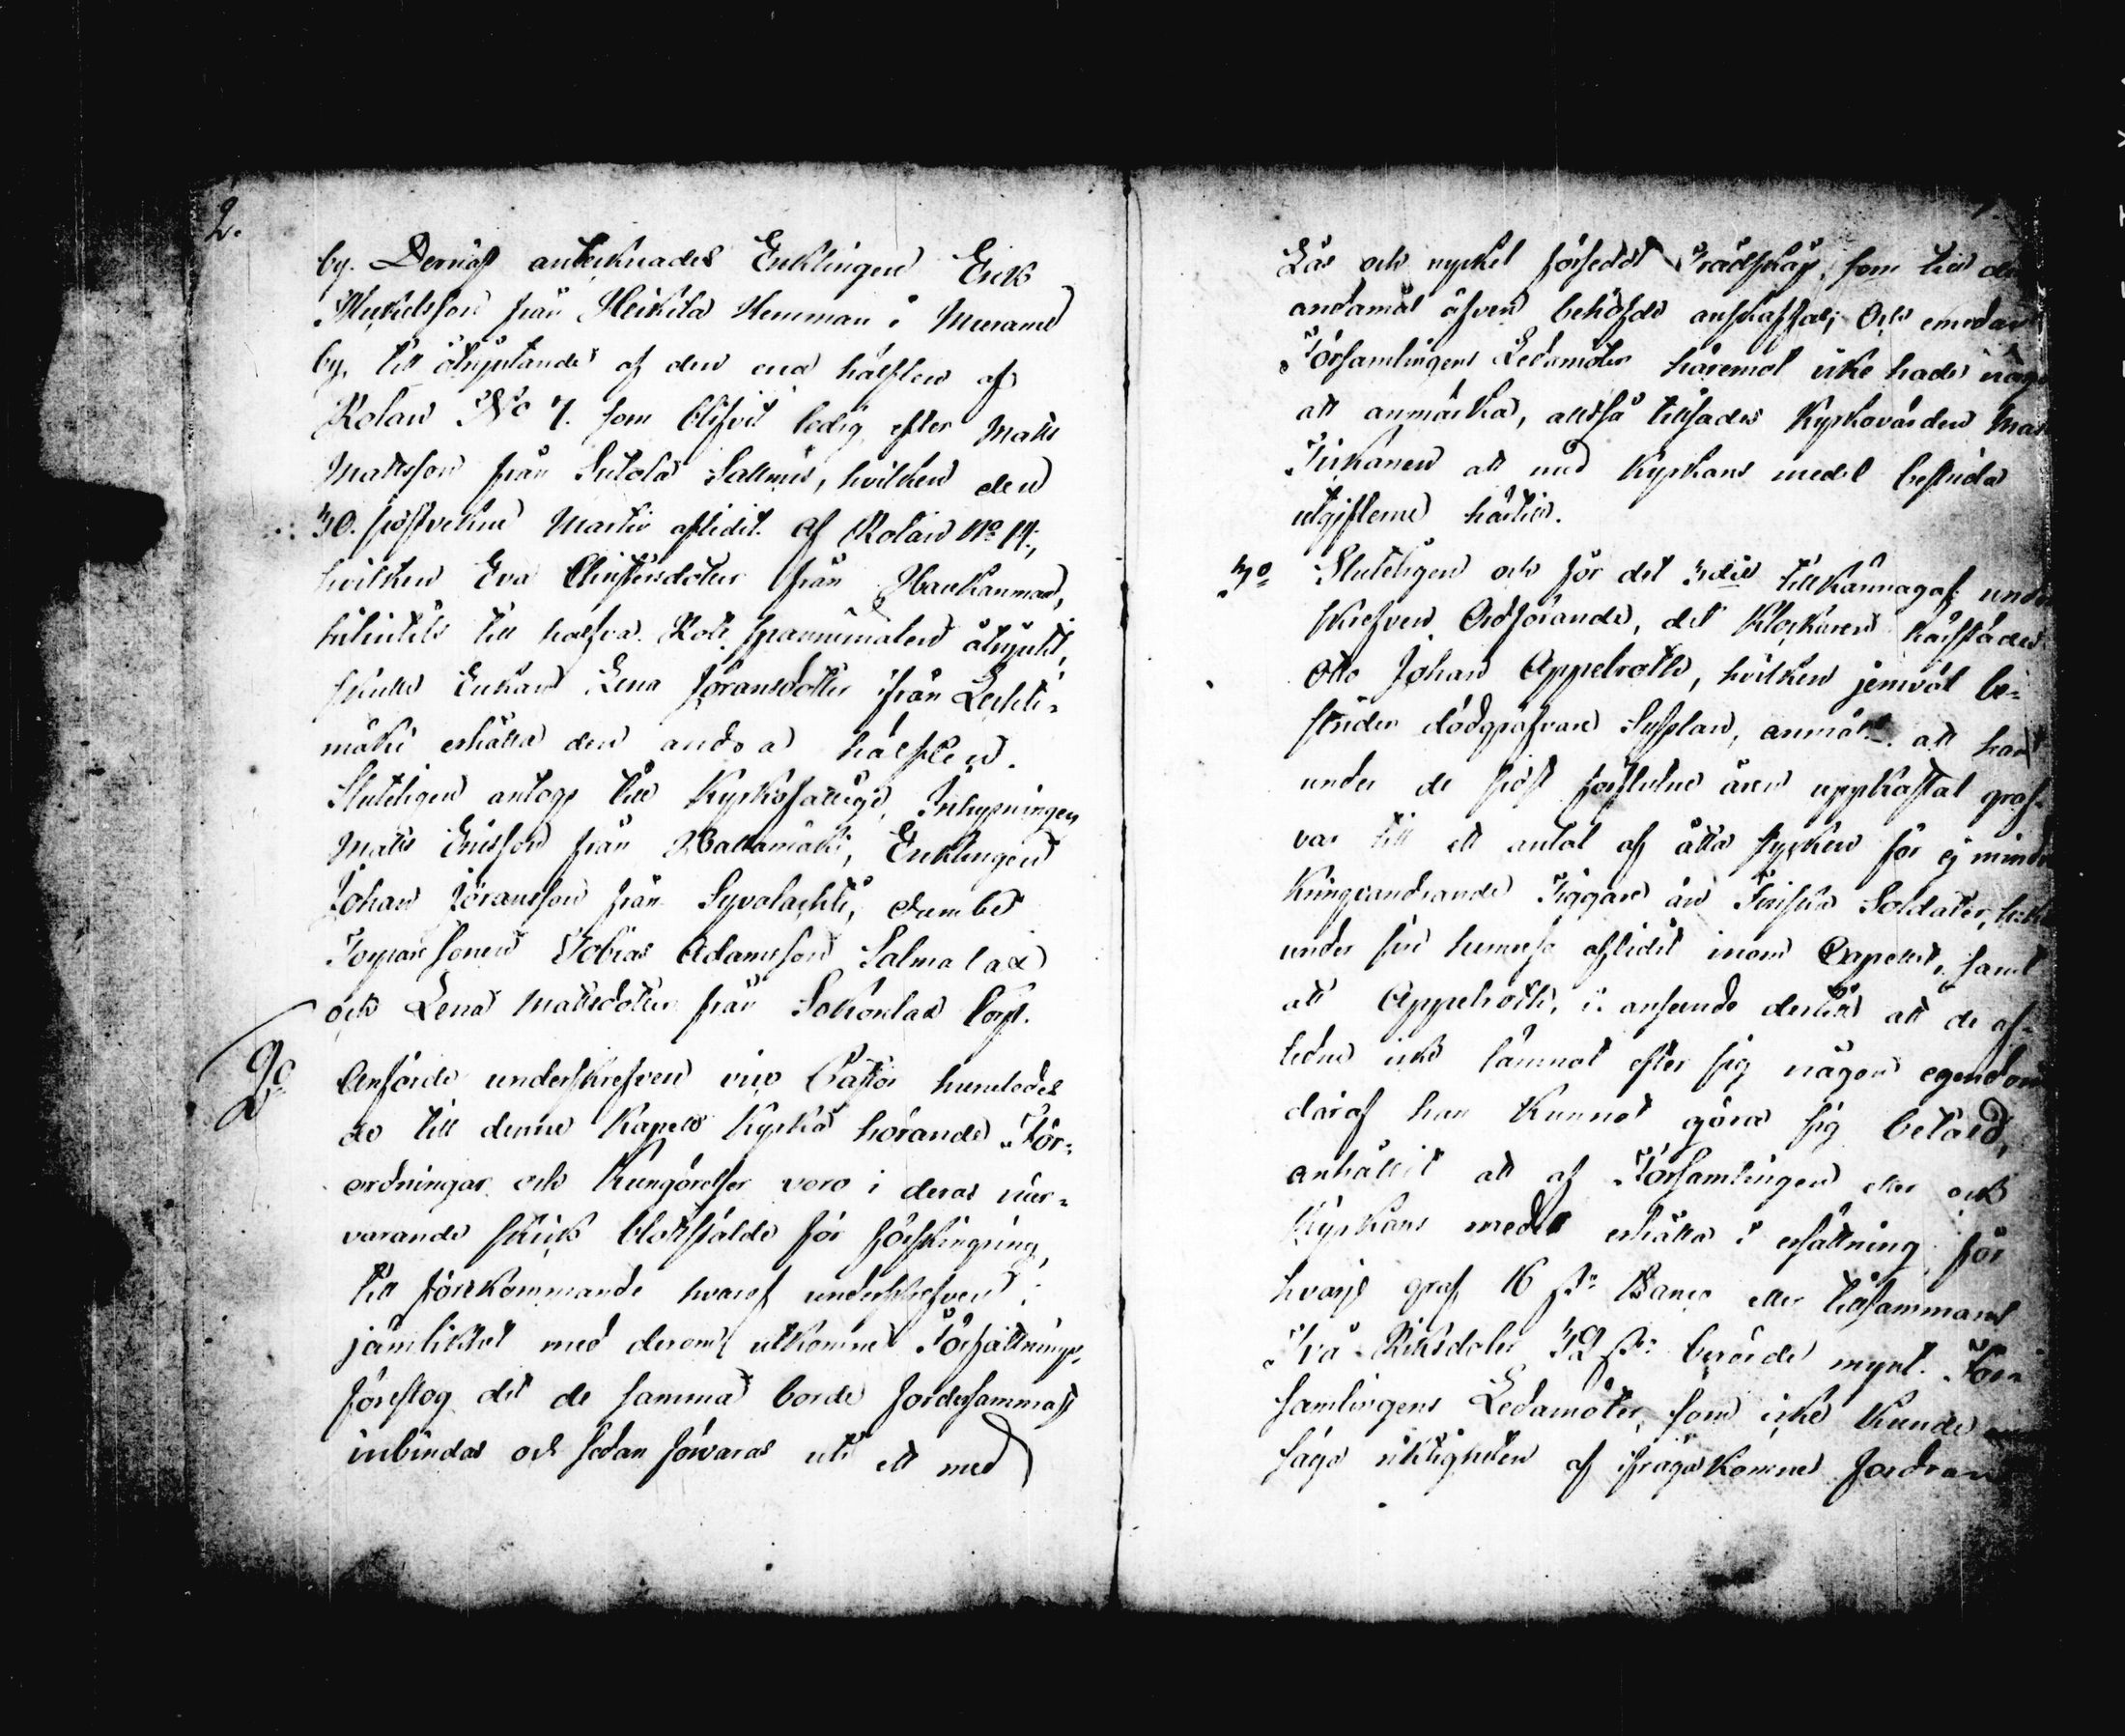 2.
by. Dernäst antecknades Enklingen Erik
Mickelsson från Heikila Hemman i Murame
by, till åtnjutande af den ena hälften af
Rotan No 7. som blifvit ledig efter Matts
Mattsson från Sutola Sallmis, hvilken den
30. sistvekne Martii aflidit. af Rotan No 14.,
hvilken Eva Christersdotter från Haukanmaa,
hitintils till halfva Rote spannmålen åtnjutit,
skulle Enkan Lena Jöransdotter ifrån Lechti-
mäki erhålla den andra hälften.
Sluteligen antogs till Kyrkofattige, Inhysningen
Matts Ericsson från Kallamäki, Enklingen
Johan Jöransson från Syvolachti, dumbe
Torparsonen Tobias Adamsson Salmelax
och Lena Mattsdotter från Sokonlax torp.
2o
Anförde underskrefven vice Pastor hurusledes
de till denne Kapell Kyrka hörande För-
ordningar och Kungörelser voro i deras när-
varande skick blottstälde för förskingring,
till förekommande hvaraf underskrefven i
jämlikhet med derom utkomne Författningar
föreslog det de samma borde fordersammast
inbindas och sedan förvaras uti ett med
Lås och nyckel försedt Trädskåp, som till
ändamål äfven behöfde anskaffas; Och emedan
Församlingens Ledamöter häremot icke hade
att anmärka, alltså tillsades Kyrkovärden
Tirkanen att med Kyrkans medel bestrida
utgifterne härtill.
3o
Sluteligen och för det 3die tillkännagaf
skrefven Ordförande, det Klockaren härstädes
Otto Johan Appelroth, hvilken jemväl be-
strider dödgräfvare Sysslan, anmält att han
under de sist förflutne åren uppkastat graf-
var till ett antal af åtta stycken för ej mindre
kringvandrande Tiggare än Finska Soldater,
under sin hemresa aflidit inom Capellet, samt
att Appelroth, i anseende dertill att de af-
ledne icke lämnat efter sig någon egendom
däraf han kunnat göra sig betald,
anhållit att af Församlingen eller och
Kyrkans medel erhålla i ersättning för
hvarje graf 16 sk: Banco eller tillsammans
Två Riksdaler 32 sk: berörde mynt. För-
samlingens Ledamöter, som icke kunde
säga riktigheten af ifrågakomne